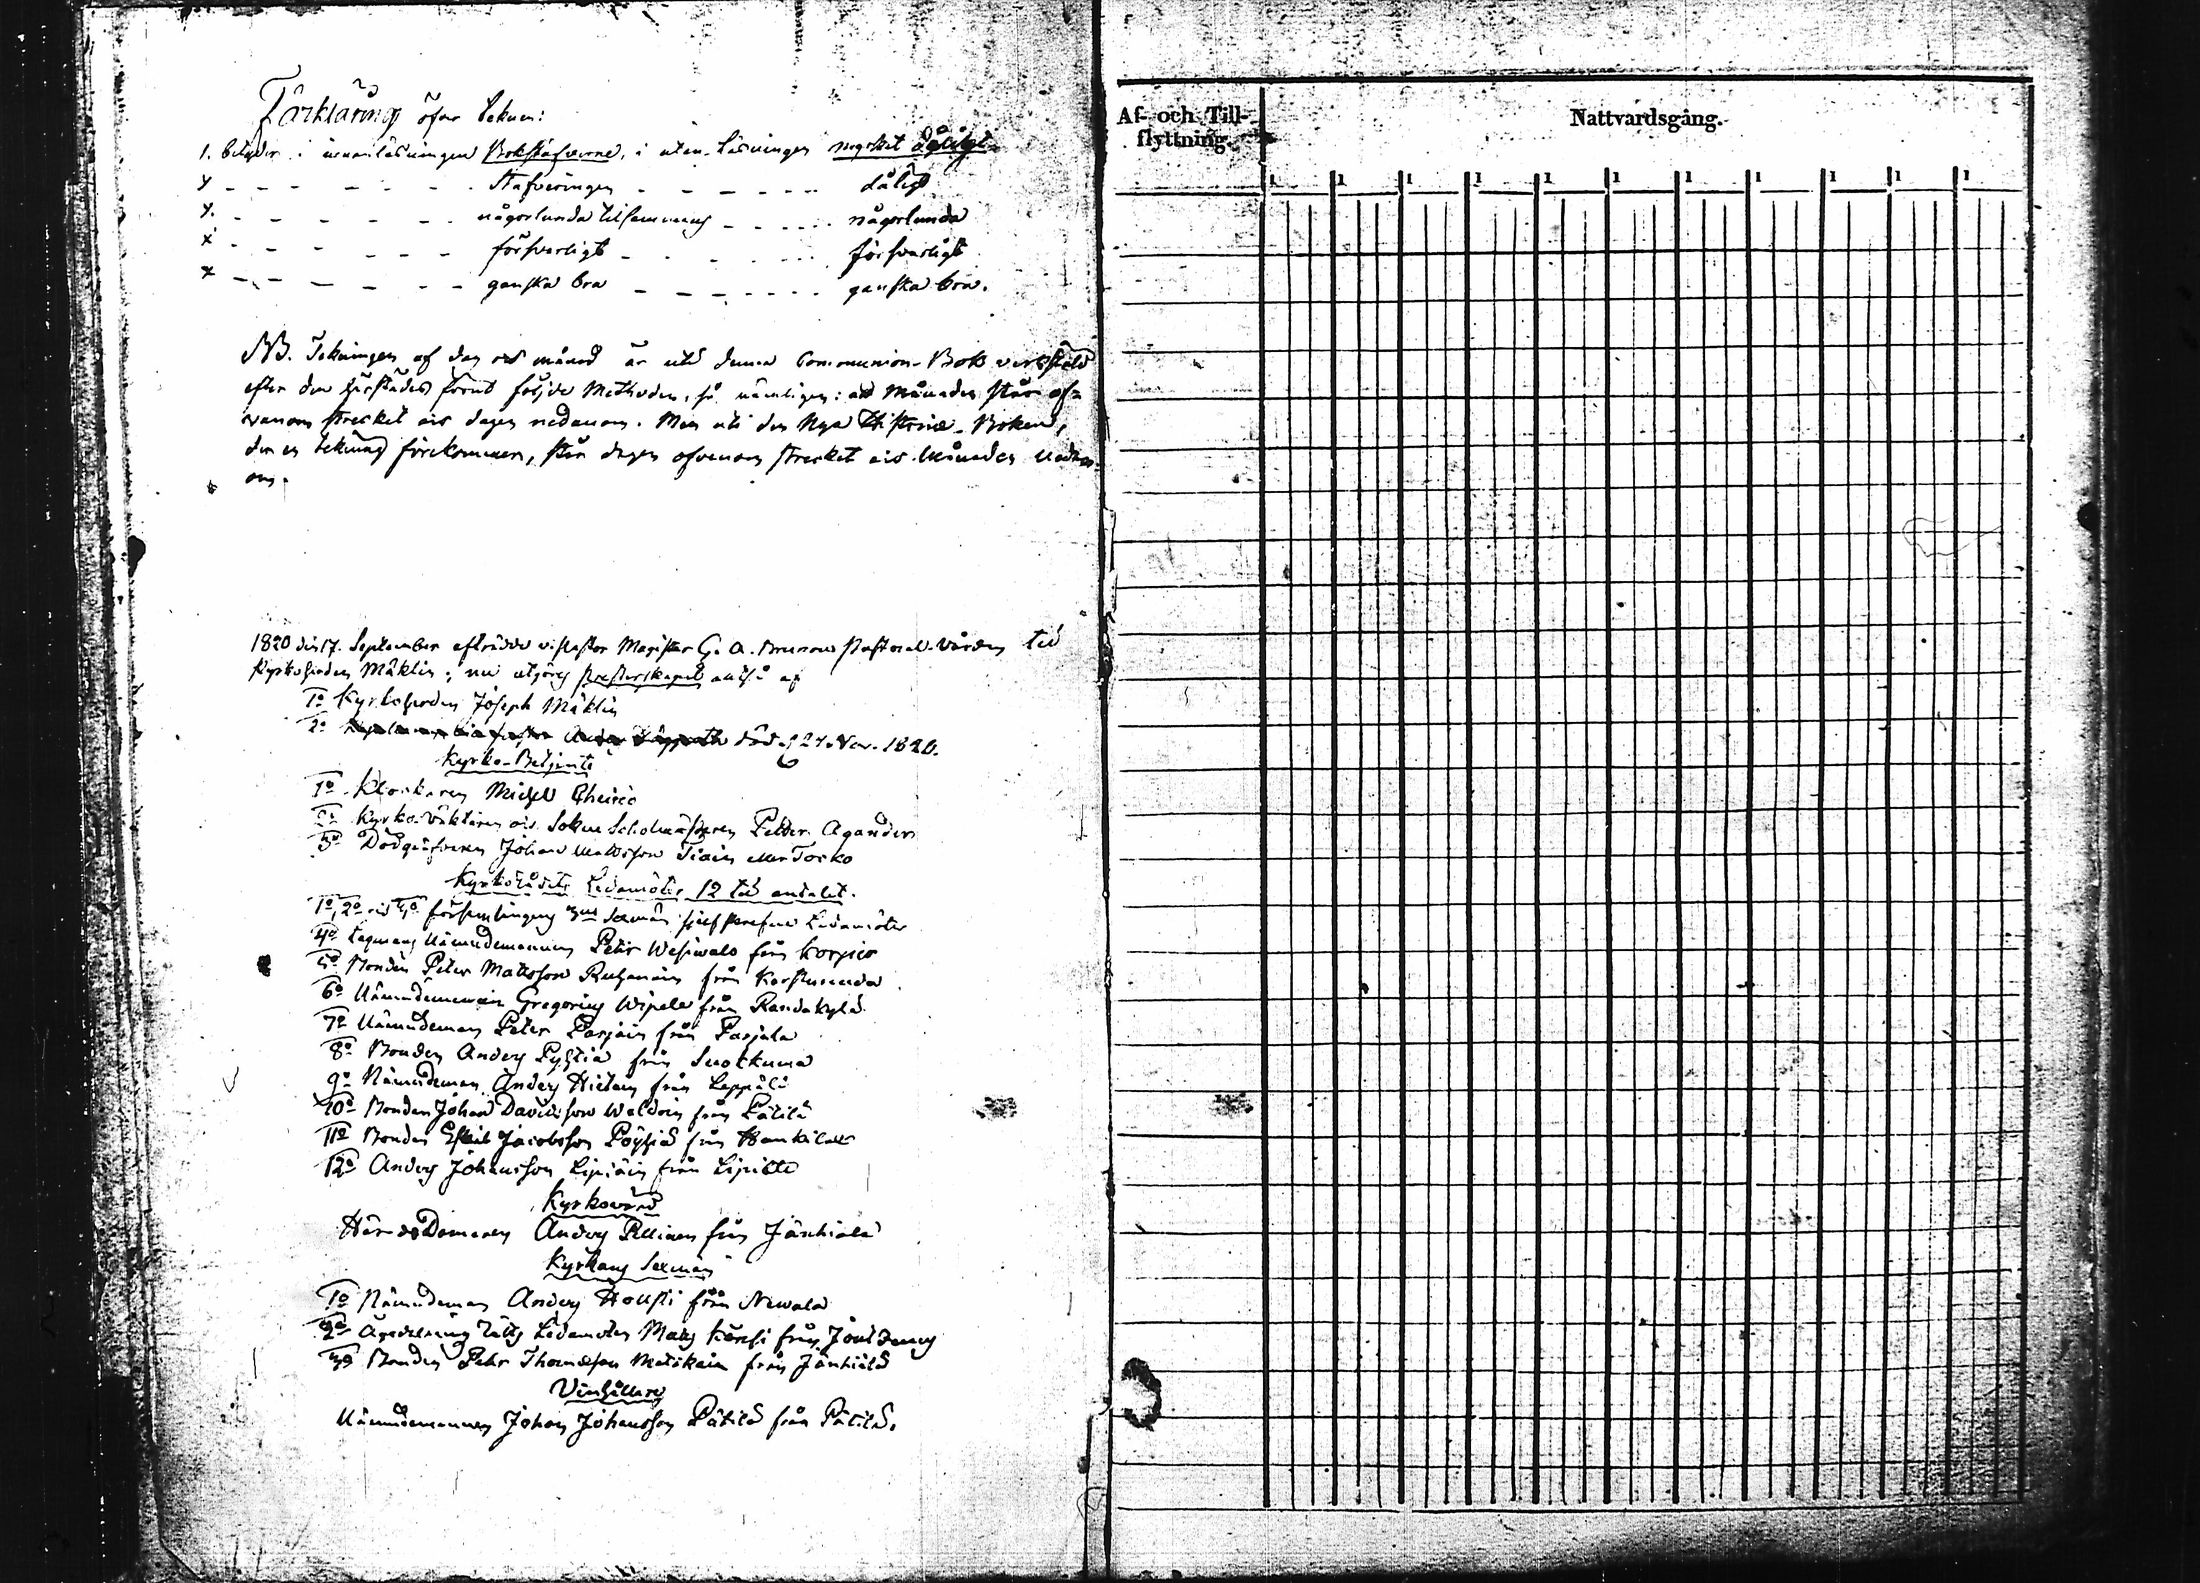 Förklaring öfver teknen:
1. betyder i innanläsningen Bokstäfverne, i utan-läsningen mycket dåligt
y - - - - - - - Stafveringen - - - - - - dåligt
y. - - - - - - någorlunda tilsammans - - - - - någorlunda
x - - - - - - försvarligt - - - - - försvarligt
x - - - - - - ganska bra - - - - - - ganska bra.
NB. Tekningen af dag och månad är uti denna Communion-Bok verkstäld
efter den härstädes förut följde Methoden, så nämligen: at Månaden står of-
vanom strecket och dagen nedanom. Men uti den Nya Boken,
der en tekning förekommer, står dagen ofvanom strecket och Månaden nedan-
om.
1820 den 17. September aftrådde vice Pastor Magister G. A. Brunow Pastoral-Vården til
Kyrkoherden Mäklin; nu utgöres Presterskapet altså af
1o Kyrkoherden Joseph Mäklin
2o död d 27 Nov. 1820.
Kyrko-Betjente
1o Klockaren Michel
2o Kyrko-Väktaren och Sokne Scholmästaren Petter Agander
3o Dödgräfvaren Johan Mattsson Tiain eller Torko
Kyrkorådets Ledamöter 12 til antalet.
1o, 2o och 3o församlingens 3ne Sexmän sjelfskrefne Ledamöter
4o Lagmans Nämndemannen Pehr Wesiwalo från Korpio
5o Bonden Peter Mattsson Ruhanen från Karstunmaa
6o Nämndemannen Gregorius Wipele från Randakylä
7o Nämndeman Peter Parjain från Parjala
8o Bonden Anders Pyhtiä från Suokkuma
9o Nämndeman Anders Hietain från Leppälä
10o Bonden Johan Davidsson Waldin från Pätilä
11o Bonden Eskil Jacobsson Pöyhiä från
12o Anders Johansson Lipiäin från Lipiälä
Kyrkovärd
HäradsDomaren Anders Pellinen från Jänhiälä
Kyrkans Sexmän
1o Nämndeman Anders Housti från Niwala
2o Ägodelnings Rätts Ledamoten Mats Kärki från
3o Bonden Pehr Thomasson Matikain från Jänhiälä
Vinhållare
Nämndemannen Johan Johansson Pätilä från Pätilä.
Af- och Till-
flyttning.
Nattvardsgång.
1 1 1 1 1 1 1 1 1 1 1